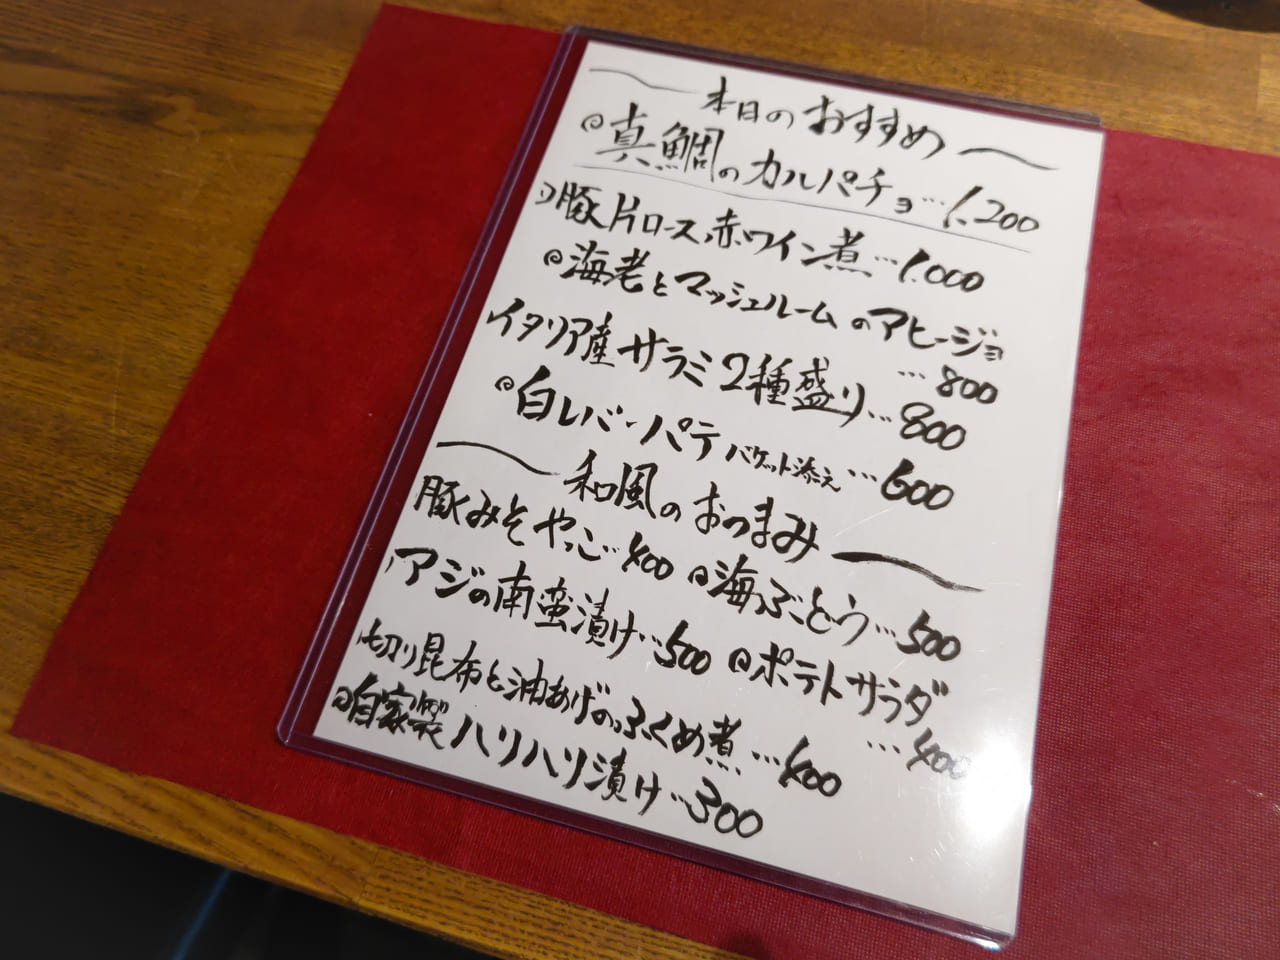 本日のおすすめ
真鯛のカルパチョ…1.200
豚片ロース赤ワイン煮…1.000
海老とマッシュルームのアヒージョ
…800
イタリア産サラミ2種盛り…800
白レバーパテ バケット添え…600
和風のおつまみ
豚みそやっこ…400 海ぶどう…500
アジの南蛮漬け…500 ポテトサラダ
…400
切り昆布と油あげのふくめ煮…400
自家製ハリハリ漬け…300